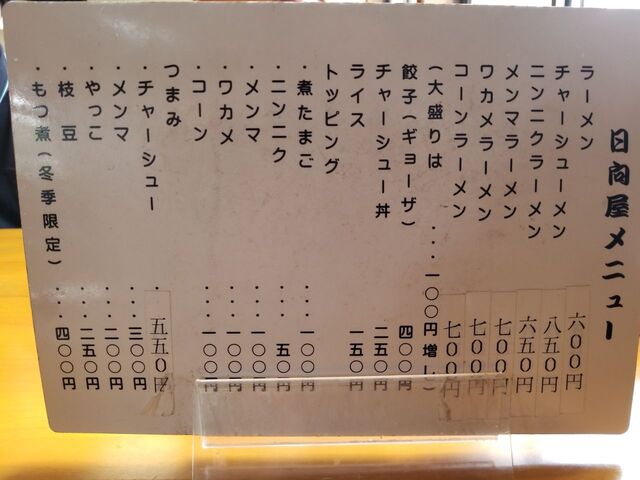 日向屋メニュー
ラーメン 六〇〇円
チャーシューメン 八五〇円
ニンニクラーメン 六五〇円
メンマラーメン 七〇〇円
ワカメラーメン 七〇〇円
コーンラーメン 七〇〇円
(大盛りは ・・・一〇〇円増し)
餃子(ギョーザ) 四〇〇円
チャーシュー丼 二五〇円
ライス 一五〇円
トッピング
・煮たまご ・・・一〇〇円
・ニンニク 五〇円
・メンマ ・・・一〇〇円
・ワカメ ・・・一〇〇円
・コーン ・・・一〇〇円
つまみ
・チャーシュー ・五五〇円
・メンマ ・・・三〇〇円
・やっこ ・・・二〇〇円
・枝豆 ・・・二五〇円
・もつ煮(冬季限定) ・・・四〇〇円